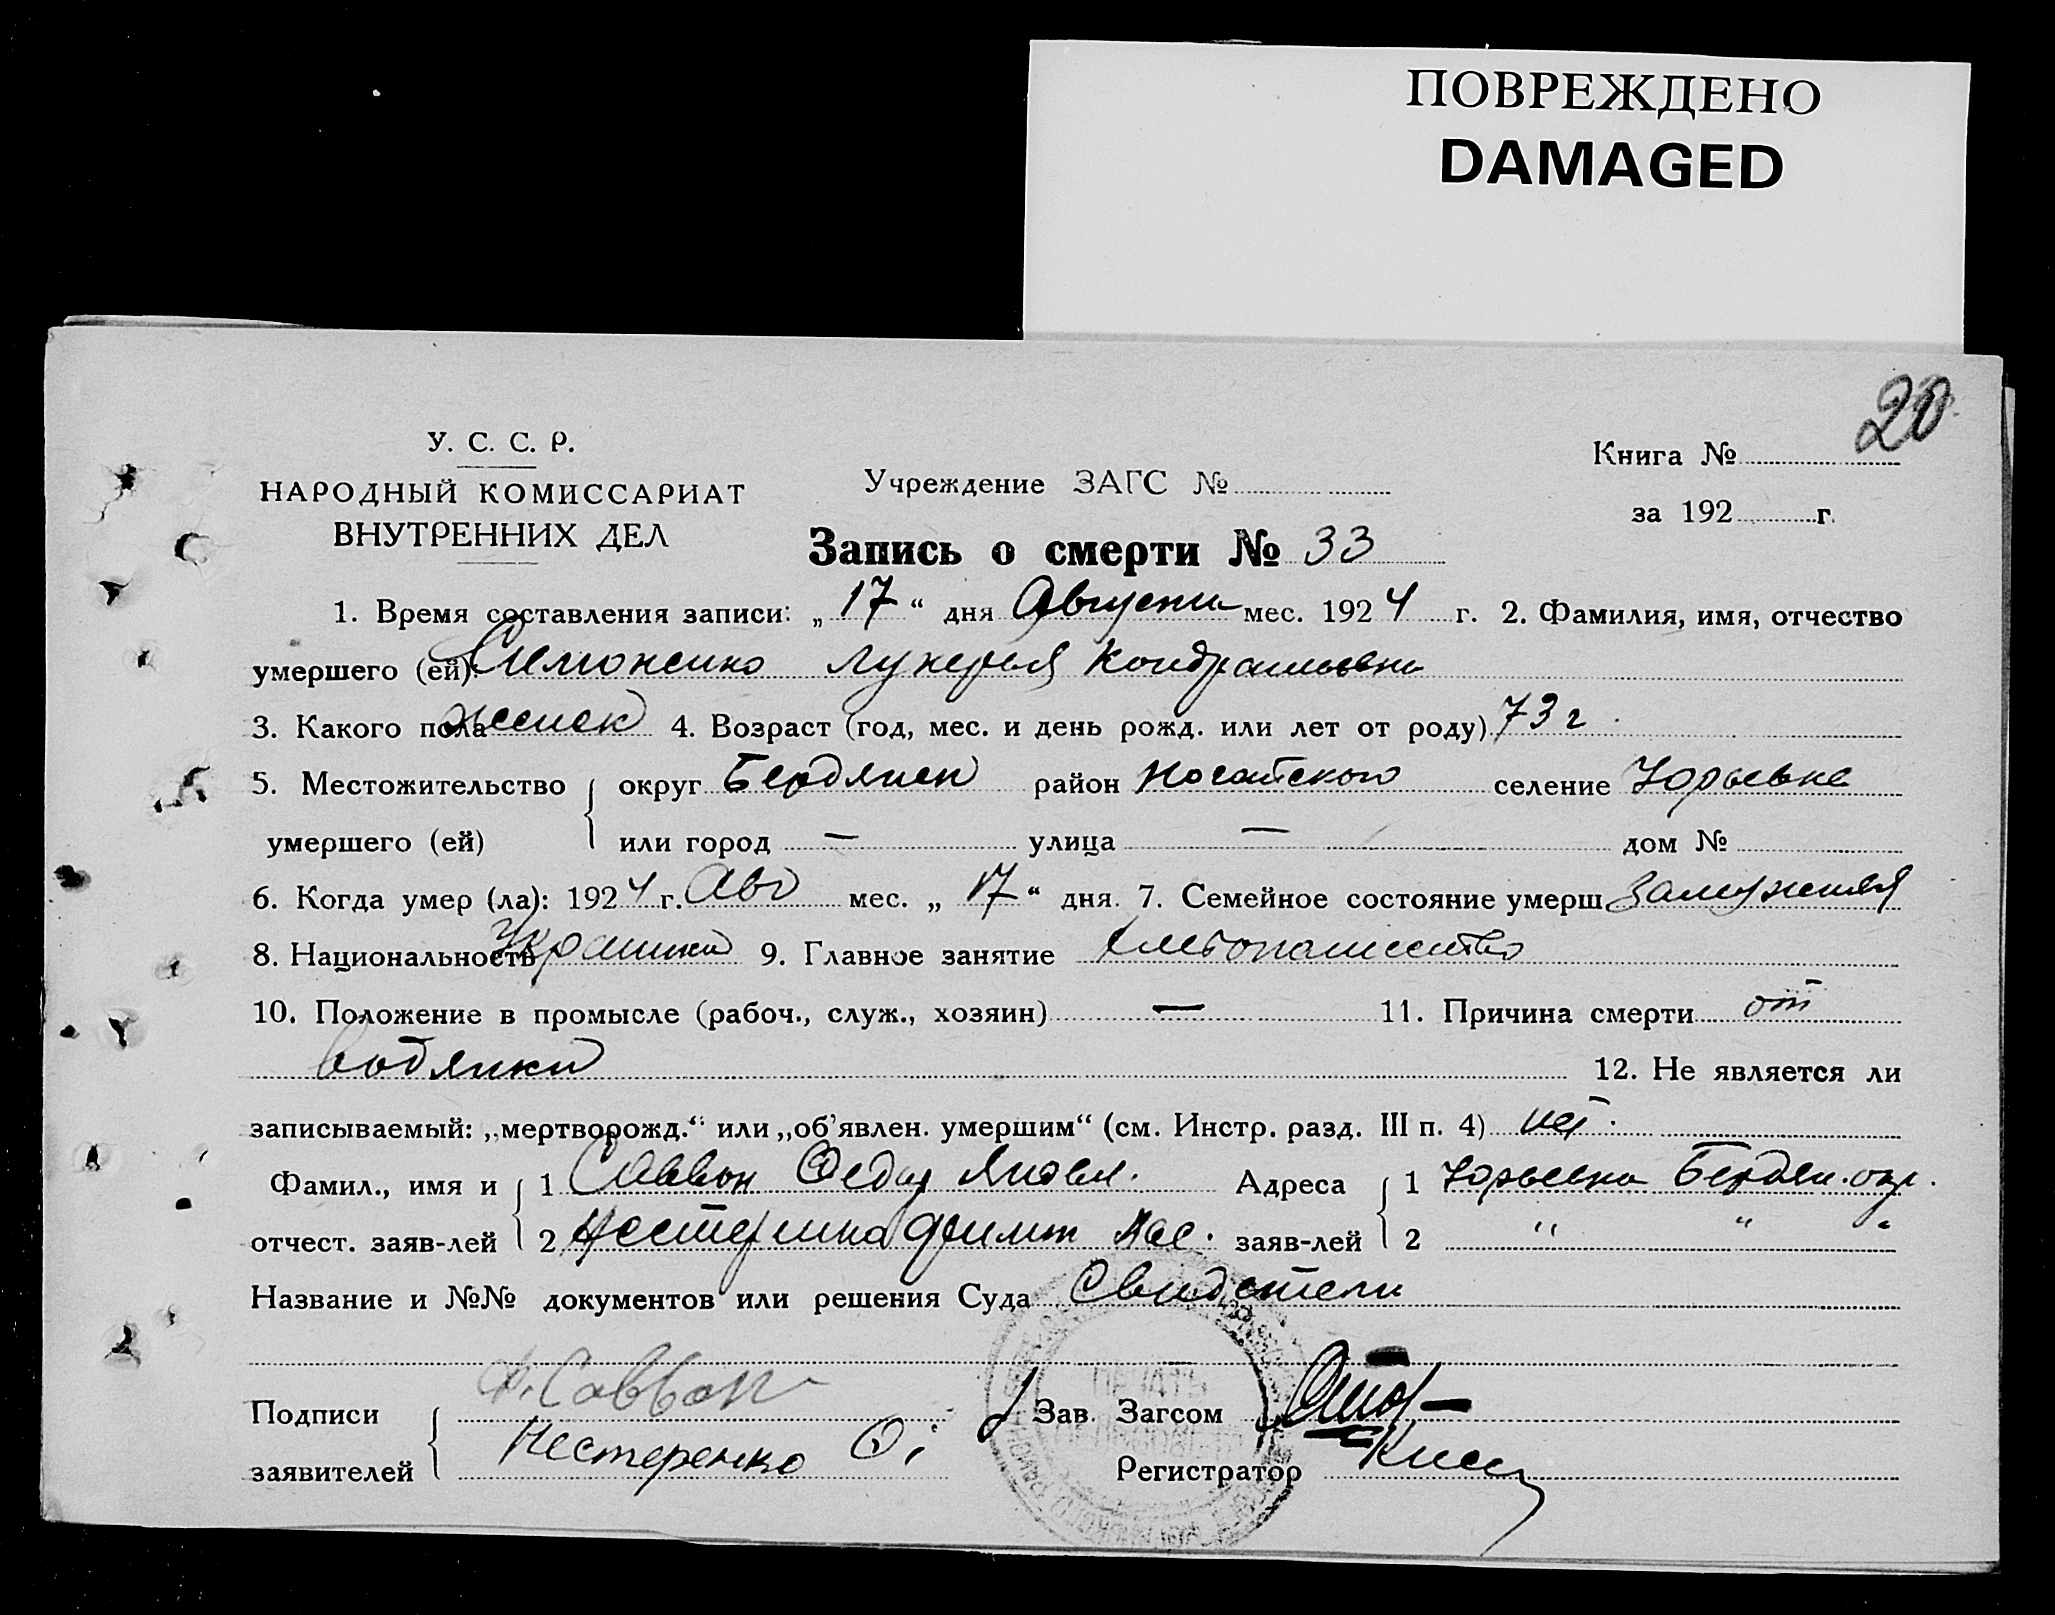 ПОВРЕЖДЕНО
DAMAGED
20
У. С. С. Р.
НАРОДНЫЙ КОМИССАРИАТ
ВНУТРЕННИХ ДЕЛ
Учреждение ЗАГС №
Книга №
за 192 г.
Запись о смерти № 33
1. Время составления записи: „17“ дня Августа мес. 1924 г. 2. Фамилия, имя, отчество
умершего (ей): Симоненко Лукерья Кондратьевна
3. Какого пола женск 4. Возраст (год, мес. и день рожд. или лет от роду) 73 г.
5. Местожительство округ Бердянск район Ногайского селение Юрьевке
умершего (ей) или город — улица — дом №
6. Когда умер (ла): 1924 г. Авг мес. „17“ дня. 7. Семейное состояние умерш. Замужняя
8. Национальность Украинка 9. Главное занятие хлебопашество
10. Положение в промысле (рабоч., служ., хозяин) — 11. Причина смерти от
водянки 12. Не является ли
записываемый: „мертворожд.“ или „об'явлен. умершим“ (см. Инстр. разд. III п. 4) нет.
Фамил., имя и 1 Саввон Федор Яковл. Адреса 1 Юрьевка Бердян. окр.
отчест. заяв-лей 2 Нестеренко заяв-лей 2 " " "
Название и №№ документов или решения Суда Свидетели
Подписи Ф. Саввон Зав. Загсом
заявителей Нестеренко Регистратор
ПЕЧАТЬ